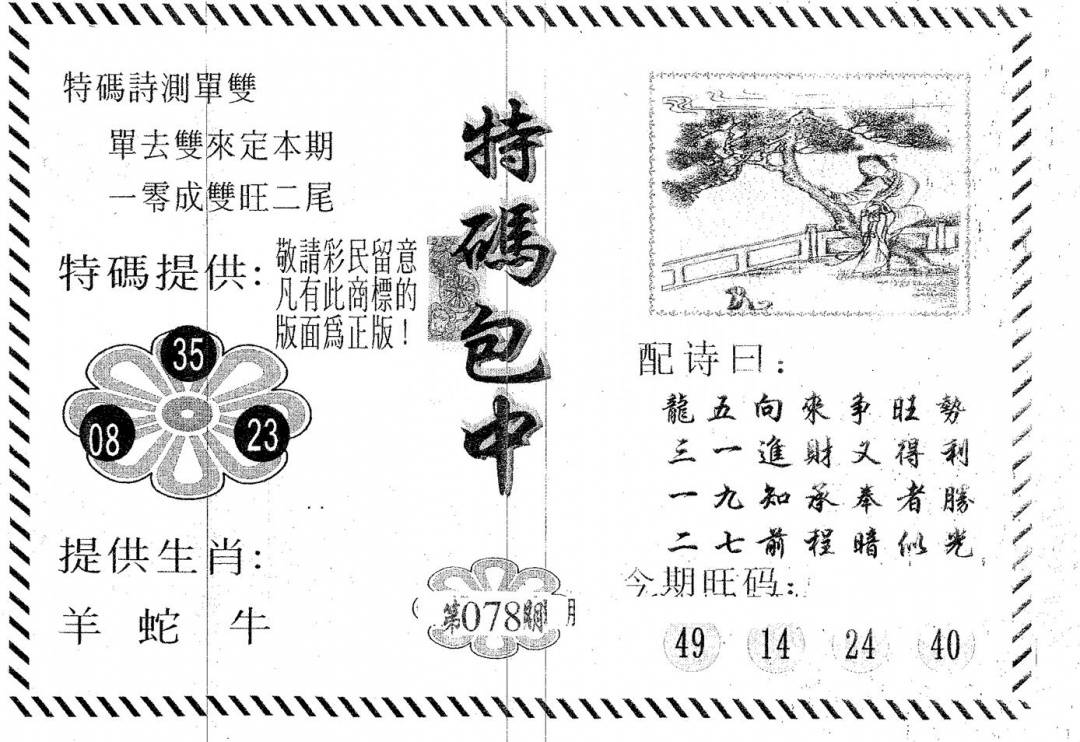 特碼詩測單雙
單去雙來定本期
一零成雙旺二尾
特碼提供:
敬請彩民留意
凡有此商標的
版面爲正版！
35
08
23
提供生肖:
羊 蛇 牛
特碼包中
第078期
配诗曰:
龍五向來爭旺勢
三一進財又得利
一九知承奉者勝
二七前程暗似光
今期旺码:
49 14 24 40